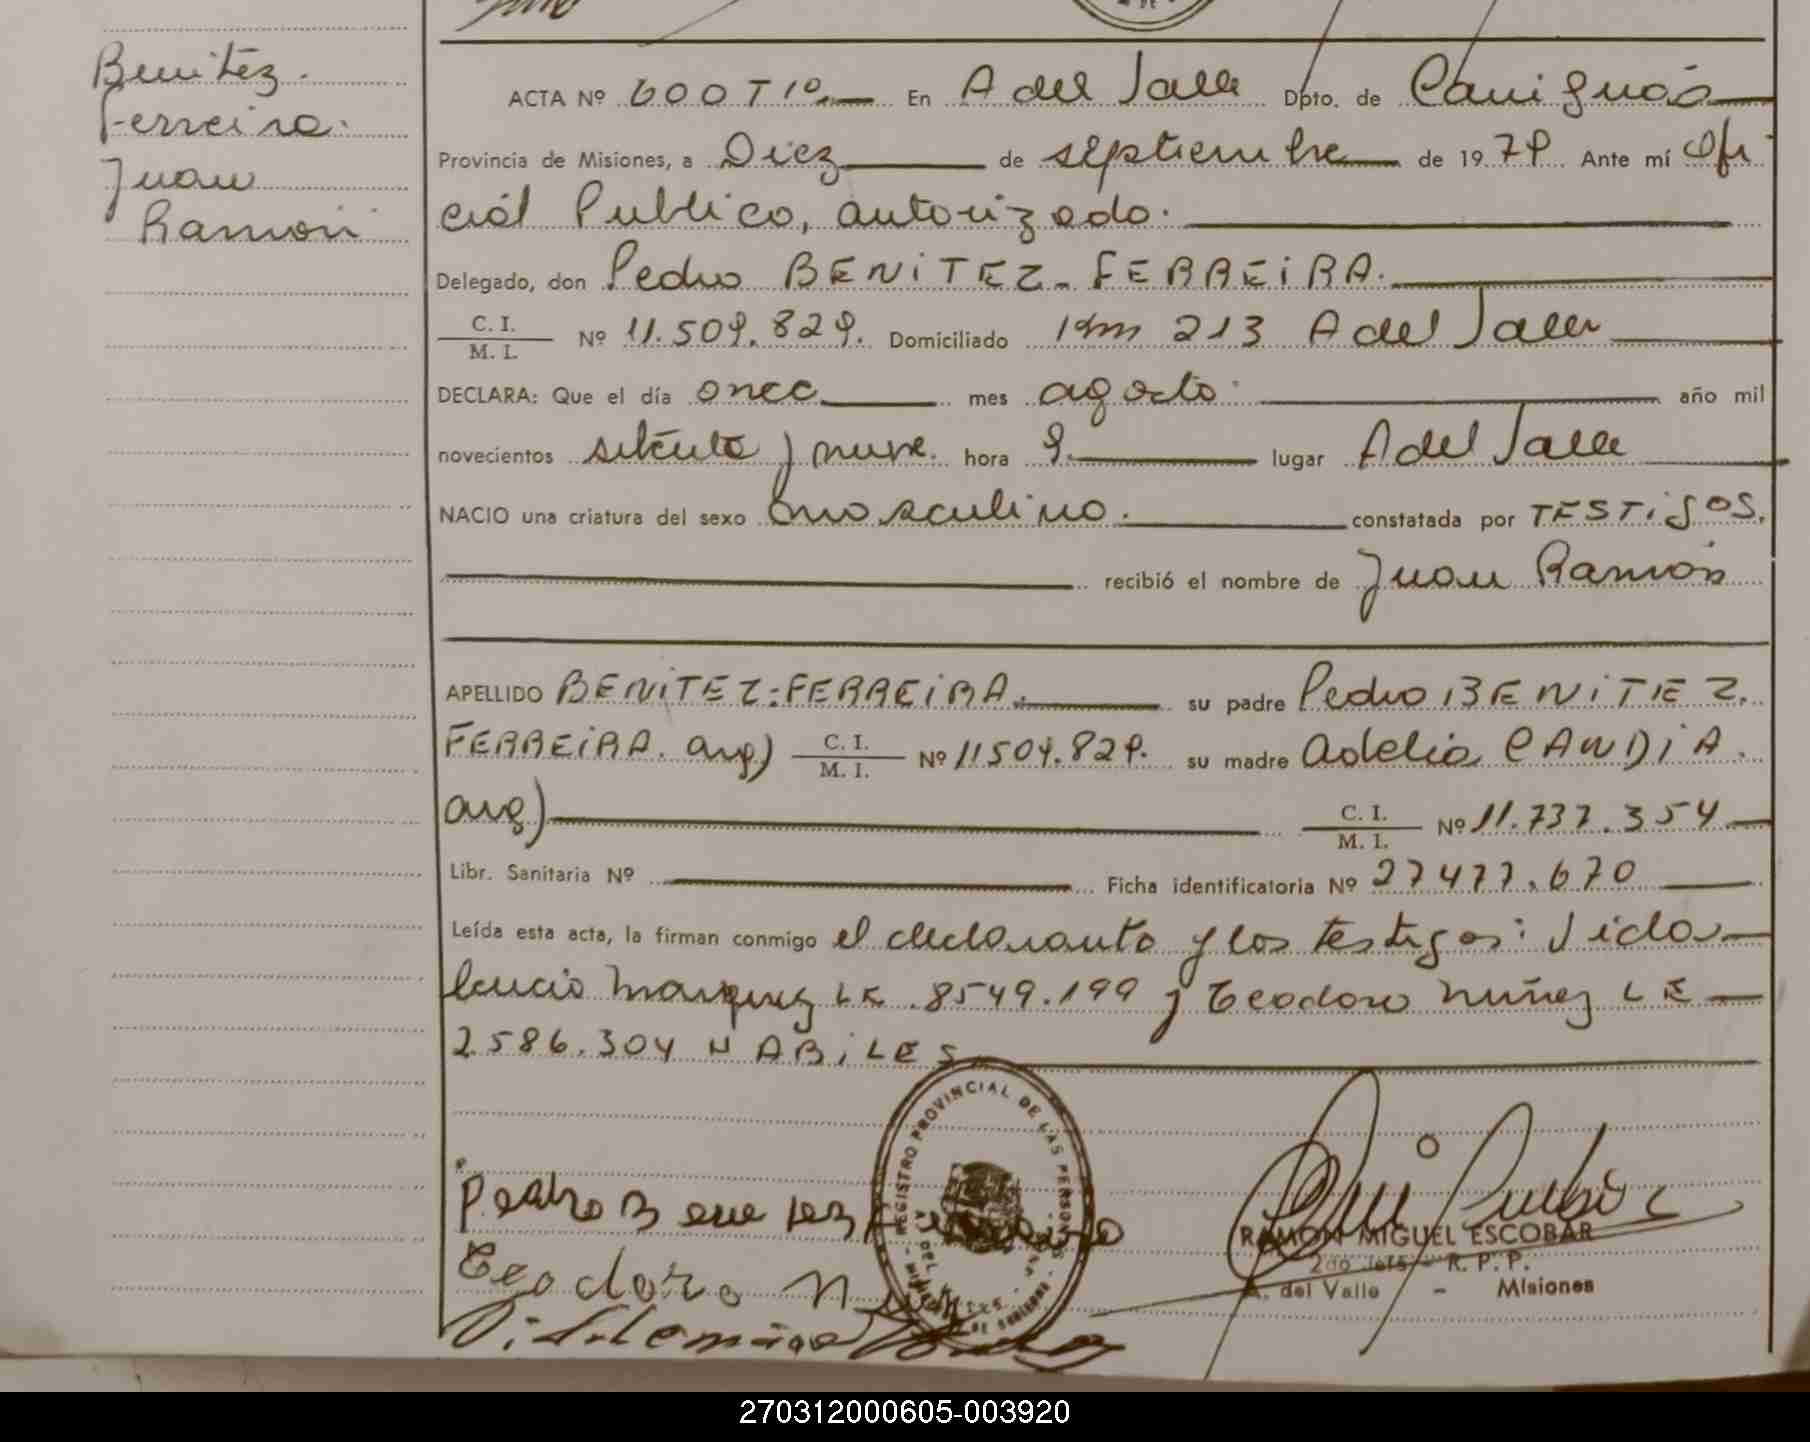 Benitez
Ferreira
Juan
Ramón
ACTA Nº 600 Tº En A del Valle Dpto. de Cainguás
Provincia de Misiones, a Diez de septiembre de 1979. Ante mí Ofi
cial Publico, autorizado.
Delegado, don Pedro BENiTEZ-FERREiRA.
C. I.
M. I. Nº 11.509.829. Domiciliado Km 213 A del Valle
DECLARA: Que el día once mes agosto año mil
novecientos setenta y nueve. hora 9. lugar A del Valle
NACIO una criatura del sexo masculino. constatada por TESTiGOS.
recibió el nombre de Juan Ramón
APELLIDO BENiTEZ-FERREiRA. su padre Pedro BENiTEZ.
FERREiRA. arg) C. I. M. I. Nº 11509.829. su madre Adelia CANDiA.
arg) C. I. M. I. Nº 11.737.354
Libr. Sanitaria Nº Ficha identificatoria Nº 27477.670
Leída esta acta, la firman conmigo el declarante y los testigos: Vidal
Marquez LE. 8549.199 y Teodoro Nuñez LE
2.586.304 HABiLES
REGISTRO PROVINCIAL DE LAS PERSONAS
Pedro Benitez
Teodoro
RAMON MIGUEL ESCOBAR
2do Jefe - R. P. P.
A. del Valle - Misiones
270312000605-003920